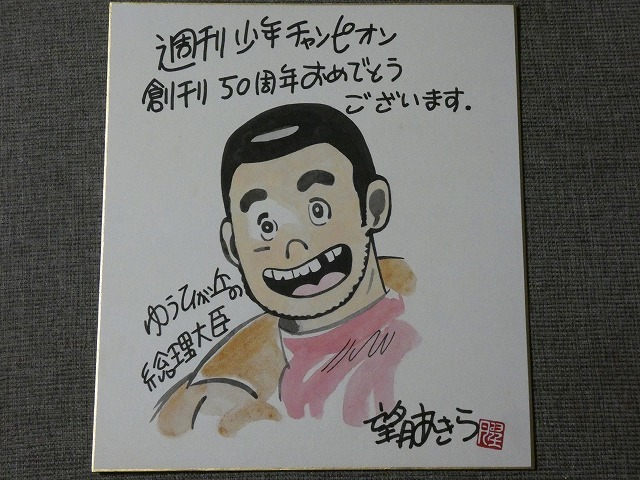 週刊少年チャンピオン
創刊50周年おめでとう
ございます.
ゆうひが丘の
総理大臣
望月あきら